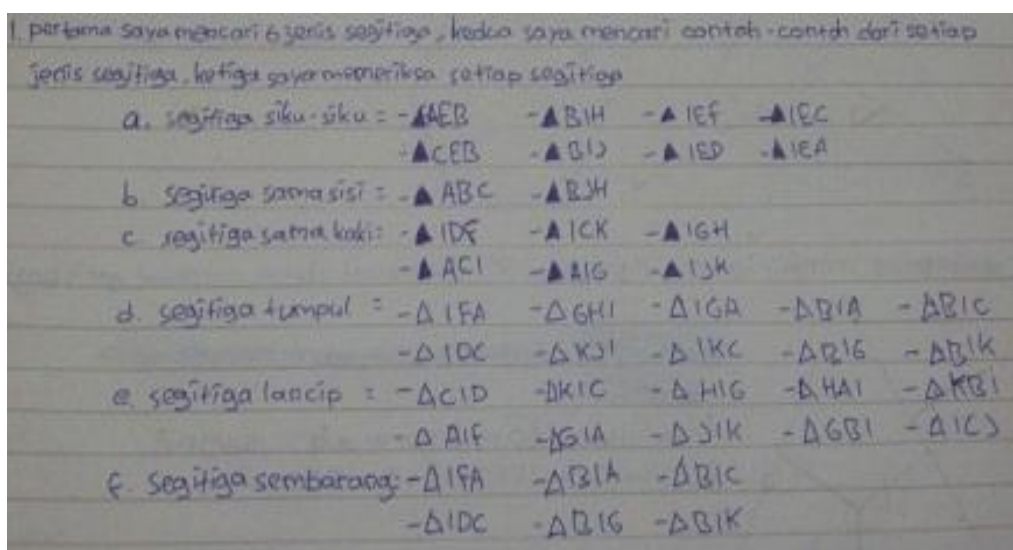 1. pertama saya mencari 6 jenis segitiga, kedua saya mencari contoh-contoh dari setiap
jenis segitiga, ketiga saya memeriksa setiap segitiga
a. segitiga siku-siku = -▲AEB -▲BIH -▲IEF -▲IEC
-▲CEB -▲BIJ -▲IED -▲IEA
b segitiga sama sisi = -▲ABC -▲BJH
c segitiga sama kaki: -▲IDF -▲ICK -▲IGH
-▲ACI -▲AIG -▲IJK
d. segitiga tumpul = -△IFA -△GHI -△IGA -△BIA -△BIC
-△IDC -△KJI -△IKC -△BIG -△BIK
e. segitiga lancip = -△CID -△KIC -△HIG -△HAI -△KBI
-△AIF -△GIA -△JIK -△GBI -△ICJ
f. segitiga sembarang: -△IFA -△BIA -△BIC
-△IDC -△BIG -△BIK